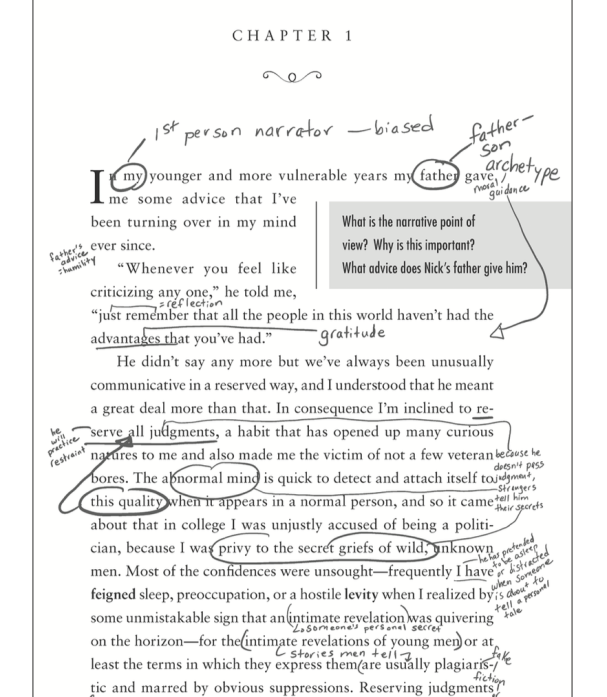 CHAPTER 1
1st person narrator — biased
father-
son
archetype
moral
guidance
In my younger and more vulnerable years my father gave
me some advice that I've
been turning over in my mind
ever since.
What is the narrative point of
view? Why is this important?
What advice does Nick's father give him?
father's
advice
=humility
"Whenever you feel like
criticizing any one," he told me,
=reflection
"just remember that all the people in this world haven't had the
advantages that you've had."
gratitude
He didn't say any more but we've always been unusually
communicative in a reserved way, and I understood that he meant
a great deal more than that. In consequence I'm inclined to re-
serve all judgments, a habit that has opened up many curious
he
will
practice
restraint
natures to me and also made me the victim of not a few veteran
bores. The abnormal mind is quick to detect and attach itself to
this quality when it appears in a normal person, and so it came
because he
doesn't pass
judgment,
strangers
tell him
their secrets
about that in college I was unjustly accused of being a politi-
cian, because I was privy to the secret griefs of wild, unknown
men. Most of the confidences were unsought—frequently I have
feigned sleep, preoccupation, or a hostile levity when I realized by
he has pretended
to be asleep
or distracted
when someone
is about to
tell a personal
tale
some unmistakable sign that an intimate revelation was quivering
someone's personal secret
on the horizon—for the intimate revelations of young men or at
stories men tell
least the terms in which they express them are usually plagiaris-
fake
fiction
tic and marred by obvious suppressions. Reserving judgments